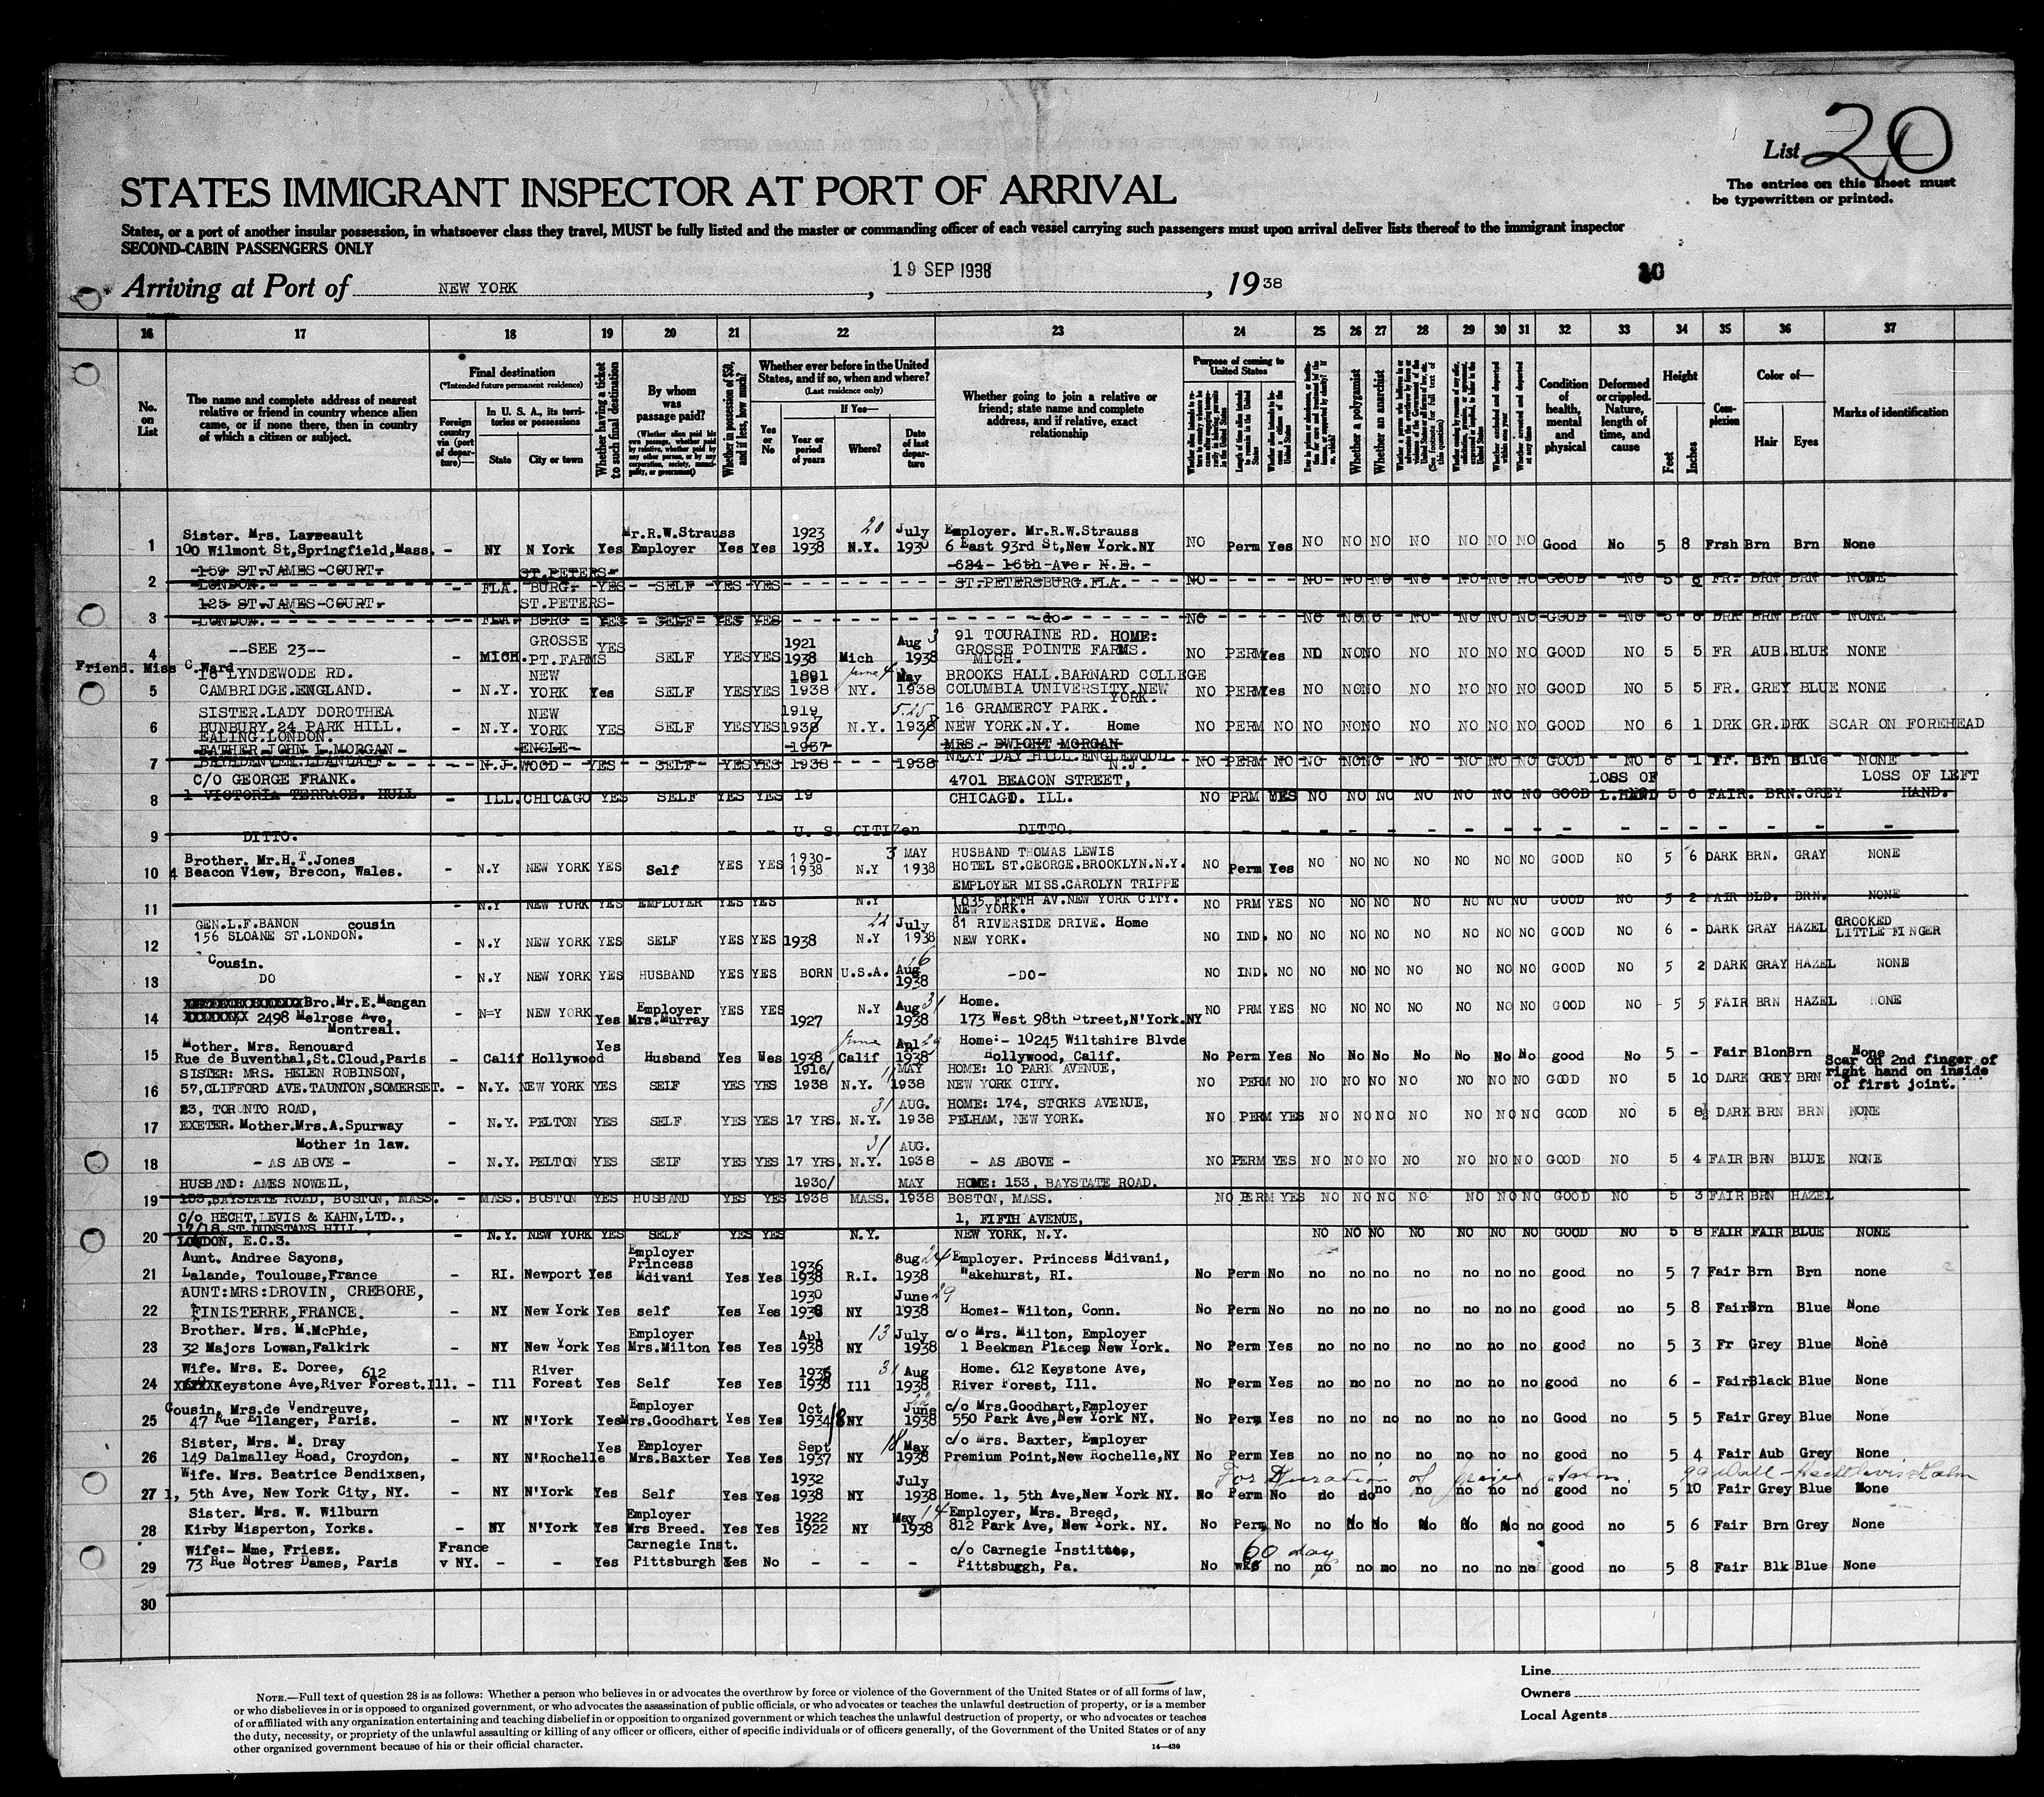 List 20
The entries on this sheet must
be typewritten or printed.
STATES IMMIGRANT INSPECTOR AT PORT OF ARRIVAL
States, or a port of another insular possession, in whatsoever class they travel, MUST be fully listed and the master or commanding officer of each vessel carrying such passengers must upon arrival deliver lists thereof to the immigrant inspector
SECOND-CABIN PASSENGERS ONLY
Arriving at Port of NEW YORK, 19 SEP 1938, 1938
16 17 18 19 20 21 22 23 24 25 26 27 28 29 30 31 32 33 34 35 36 37
No. on List
The name and complete address of nearest relative or friend in country whence alien came, or if none there, then in country of which a citizen or subject.
Final destination
(*Intended future permanent residence)
Foreign country via (port of departure)—
In U. S. A., its territories or possessions
State
City or town
Whether having a ticket to such final destination
By whom was passage paid?
(Whether alien paid his own passage, whether paid by relative, whether paid by any other person, or by any corporation, society, municipality, or government)
Whether in possession of $50, and if less, how much?
Whether ever before in the United States, and if so, when and where?
(Last residence only)
Yes or No
If Yes—
Year or period of years
Where?
Date of last departure
Whether going to join a relative or friend; state name and complete address, and if relative, exact relationship
Purpose of coming to United States
Length of time alien intends to remain in the United States
Whether a polygamist
Whether an anarchist
Whether excluded and deported within one year
Whether arrested and deported at any time
Condition of health, mental and physical
Deformed or crippled. Nature, length of time, and cause
Height
Feet
Inches
Complexion
Color of—
Hair
Eyes
Marks of identification
1 Sister. Mrs. Lasseault 100 Wilmont St,Springfield,Mass. - NY N York Yes Mr.R.W.Strauss Employer Yes Yes 1923 1938 N.Y. 20 July 1930 Employer. Mr.R.W.Strauss 6 East 93rd St,New York.NY NO Perm Yes NO NO NO NO NO NO NO Good No 5 8 Frsh Brn Brn None
2 159 ST.JAMES COURT. LONDON. - FLA. ST.PETERSBURG. YES SELF YES YES 624 16th Ave. N.E. ST.PETERSBURG.FLA. NO NO NO NO NO NO NO NO GOOD NO 5 8 FR. BRN BRN NONE
3 125 ST.JAMES COURT. LONDON. - FLA ST.PETERSBURG YES SELF YES YES -do- NO NO NO NO NO NO NO NO GOOD NO 5 6 DRK BRN BRN NONE
4 --SEE 23-- - MICH. GROSSE PT.FARMS YES SELF YES YES 1921 1938 Mich Aug 3 1938 91 TOURAINE RD. HOME: GROSSE POINTE FARMS. MICH. NO PERM Yes NO NO NO NO NO NO NO GOOD NO 5 5 FR AUB. BLUE NONE
Friend. Miss C.Ward
5 18 LYNDEWODE RD. CAMBRIDGE.ENGLAND. - N.Y. NEW YORK Yes SELF YES YES 1891 1938 NY. June 4 May 1938 BROOKS HALL.BARNARD COLLEGE COLUMBIA UNIVERSITY.NEW YORK. NO PERM Yes NO NO NO NO NO NO NO GOOD NO 5 5 FR. GREY BLUE NONE
6 SISTER.LADY DOROTHEA HUNBURY.24 PARK HILL. EALING.LONDON. - N.Y. NEW YORK YES SELF YES YES 1919 1938 N.Y. 5.25 1938 16 GRAMERCY PARK. NEW YORK.N.Y. Home NO PERM NO NO NO NO NO NO NO NO GOOD NO 6 1 DRK GR. DRK SCAR ON FOREHEAD
7 FATHER JOHN L.MORGAN LLANDAFF - N.J. ENGLEWOOD YES SELF YES YES 1937 1938 1938 MRS. DWIGHT MORGAN NEXT DAY HILL.ENGLEWOOD. N.J. NO PERM NO NO NO NO NO NO NO NO GOOD NO 6 1 Fr. Brn Blue NONE
8 C/O GEORGE FRANK. 1 VICTORIA TERRACE. HULL - ILL. CHICAGO YES SELF YES YES 19 4701 BEACON STREET, CHICAGO. ILL. NO PRM YES NO NO NO NO NO NO NO GOOD LOSS OF L.HAND 5 6 FAIR. BRN. GREY LOSS OF LEFT HAND.
9 DITTO. U. S. CITIZen DITTO.
10 Brother. Mr.H.T.Jones 4 Beacon View, Brecon, Wales. - N.Y NEW YORK YES Self YES YES 1930- 1938 N.Y 3 MAY 1938 HUSBAND THOMAS LEWIS HOTEL ST.GEORGE.BROOKLYN.N.Y. NO Perm Yes NO NO NO NO NO NO NO GOOD NO 5 6 DARK BRN. GRAY NONE
11 - N.Y NEW YORK YES EMPLOYER YES YES N.Y EMPLOYER MISS.CAROLYN TRIPPE 1035 FIFTH AV.NEW YORK CITY. NEW YORK. NO PRM YES NO NO NO NO NO NO NO GOOD NO 5 2 FAIR BLD. BRN. NONE
12 GEN.L.F.BANON cousin 156 SLOANE ST.LONDON. - N.Y NEW YORK YES SELF YES YES 1938 N.Y 22 July 1938 81 RIVERSIDE DRIVE. Home NEW YORK. NO IND. NO NO NO NO NO NO NO NO GOOD NO 6 - DARK GRAY HAZEL CROOKED LITTLE FINGER
13 Cousin. DO - N.Y NEW YORK YES HUSBAND YES YES BORN U.S.A. 16 Aug 1938 -DO- NO IND. NO NO NO NO NO NO NO NO GOOD NO 5 2 DARK GRAY HAZEL NONE
14 Bro.Mr.E.Mangan 2498 Melrose Ave, Montreal. - N=Y NEW YORK Yes Employer Mrs.Murray YES YES 1927 N.Y Aug 31 1938 Home. 173 West 98th Street,N'York.NY NO PRM YES NO NO NO NO NO NO NO GOOD NO 5 5 FAIR BRN HAZEL NONE
15 Mother. Mrs. Renouard Rue de Buventhal,St.Cloud,Paris - Calif Hollywood Yes Husband Yes Yes 1938 Calif June Apl 29 1938 Home:- 10245 Wiltshire Blvde Hollywood, Calif. No Perm Yes No No No No No No No good No 5 - Fair Blon Brn None
16 SISTER: MRS. HELEN ROBINSON, 57,CLIFFORD AVE.TAUNTON,SOMERSET. - N.Y. NEW YORK YES SELF YES YES 1916/ 1938 N.Y. 11 MAY 1938 HOME: 10 PARK AVENUE, NEW YORK CITY. NO PERM NO NO NO NO NO NO NO NO GOOD NO 5 10 DARK GREY BRN Scar on 2nd finger of right hand on inside of first joint.
17 23, TORONTO ROAD, EXETER. Mother.Mrs.A.Spurway - N.Y. PELTON YES SELF YES YES 17 YRS. N.Y. 31 AUG. 1938 HOME: 174, STORKS AVENUE, PELHAM, NEW YORK. NO PERM YES NO NO NO NO NO NO NO GOOD NO 5 8½ DARK BRN BRN NONE
18 Mother in law. - AS ABOVE - - N.Y. PELTON YES SElF YES YES 17 YRS. N.Y. 31 AUG. 1938 - AS ABOVE - NO PERM YES NO NO NO NO NO NO NO GOOD NO 5 4 FAIR BRN BLUE NONE
19 HUSBAND: AMES NOWElL, 153,BAYSTATE ROAD, BOSTON, MASS. - MASS. BOSTON YES HUSBAND YES YES 1930/ 1938 MASS. MAY 1938 HOME: 153, BAYSTATE ROAD. BOSTON, MASS. NO PERM YES NO NO NO NO NO NO NO GOOD NO 5 3 FAIR BRN HAZEL
20 C/o HECHT,LEVIS & KAHN,LTD., 17/18 ST.DUNSTANS HILL LONDON, E.C.3. - N.Y. NEW YORK YES SELF YES YES N.Y. 1, FIFTH AVENUE, NEW YORK, N.Y. NO NO NO NO NO NO NO GOOD NO 5 8 FAIR FAIR BLUE NONE
21 Aunt. Andree Sayons, Lalande, Toulouse,France - RI. Newport Yes Employer Princess Mdivani Yes Yes 1936 1938 R.I. Aug 24 1938 Employer. Princess Mdivani, Wakehurst, RI. No Perm No no no no no no no no good no 5 7 Fair Brn Brn none
22 AUNT:MRS:DROVIN, CREBORE, FINISTERRE,FRANCE. - NY New York Yes self Yes Yes 1930 1938 NY June 29 1938 Home:- Wilton, Conn. No Perm No no no no no no no no good no 5 8 Fair Brn Blue None
23 Brother. Mrs. M.McPhie, 32 Majors Lowan,Falkirk - NY New York Yes Employer Mrs.Milton Yes Yes Apl 1938 NY 13 July 1938 c/o Mrs. Milton, Employer 1 Beekman Place, New York. No Perm Yes no no no no no no no good no 5 3 Fr Grey Blue None
24 Wife. Mrs. E. Doree, 612 Keystone Ave,River Forest.Ill. - Ill River Forest Yes Self Yes Yes 1936 1938 Ill 31 Aug 1938 Home. 612 Keystone Ave, River Forest, Ill. No Perm Yes no no no no no no no good no 6 - Fair Black Blue None
25 Cousin, Mrs.de Vendreuve, 47 Rue Ellanger, Paris. - NY N'York Yes Employer Mrs.Goodhart Yes Yes Oct 1934/8 NY 22 June 1938 c/o Mrs.Goodhart,Employer 550 Park Ave,New York NY. No Perm Yes no no no no no no no Good no 5 5 Fair Grey Blue None
26 Sister, Mrs. M. Dray 149 Dalmalley Road, Croydon, - NY N'Rochelle Yes Employer Mrs.Baxter Yes Yes Sept 1937 NY 18 May 1938 c/o Mrs. Baxter, Employer Premium Point,New Rochelle,NY No Perm Yes no no no no no no no good no 5 4 Fair Aub Grey None
27 Wife. Mrs. Beatrice Bendixsen, 1, 5th Ave, New York City, NY. - NY N'York Yes Self Yes Yes 1932 1938 NY July 1938 Home. 1, 5th Ave,New York NY. No Perm No no no no no no no no good no 5 10 Fair Grey Blue None
For Duration of
28 Sister. Mrs. W. Wilburn Kirby Misperton, Yorks. - NY N'York Yes Employer Mrs Breed. Yes Yes 1922 1922 NY May 14 1938 Employer, Mrs. Breed, 812 Park Ave, New York. NY. No Perm No no No No No No No no good no 5 6 Fair Brn Grey None
29 Wife:- Mme, Friesz. 73 Rue Notres Dames, Paris France v NY. - - Yes Carnegie Inst. Pittsburgh Yes No - - - c/o Carnegie Institute, Pittsburgh, Pa. No 60 day no no no no no no no no good no 5 8 Fair Blk Blue None
30
Line
Owners
Local Agents
NOTE.—Full text of question 28 is as follows: Whether a person who believes in or advocates the overthrow by force or violence of the Government of the United States or of all forms of law,
or who disbelieves in or is opposed to organized government, or who advocates the assassination of public officials, or who advocates or teaches the unlawful destruction of property, or is a member
of or affiliated with any organization entertaining and teaching disbelief in or opposition to organized government or which teaches the unlawful destruction of property, or who advocates or teaches
the duty, necessity, or propriety of the unlawful assaulting or killing of any officer or officers, either of specific individuals or of officers generally, of the Government of the United States or of any
other organized government because of his or their official character.
14—430